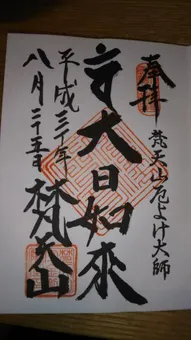 奉拝
梵天山厄よけ大師
大日如來
梵天山
平成三十年
八月二十五日